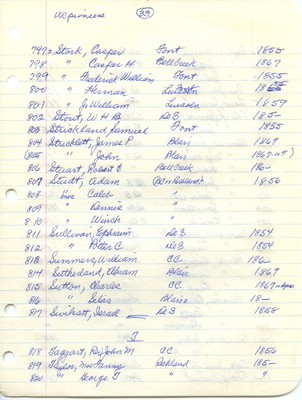 WC pioneers 33
797 Stork, Casper Font 1855
798 " Casper H Bell Creek 1867
799 " Frederick William Font 1855
800 " Herman 1855
801 " J. William 1859
802 Stout, W H B De S 185-
803 Strickland, Samuel Font 1855
804 Stricklett, James P Blair 1869
805 " John Blair
806 Stuart, Robert E Bell Creek 186-
807 Studt, Adam 1856
808 Sue Caleb
809 " Dennis "
810 " Winch "
811 Sullivan, Ephraim De S 1854
812 " Potter C De S 1854
813 Summers, William CC 186-
814 Sutherland, Abram Blair 1867
815 Sutton, Charles CC 1867
816 " Silas Blaine 18-
817 Swihart, Israel De S 1858
T
818 Taggart, Rev John M CC 1856
819 Taylor, Mrs Fanny Richland 185-
820 " George T " "